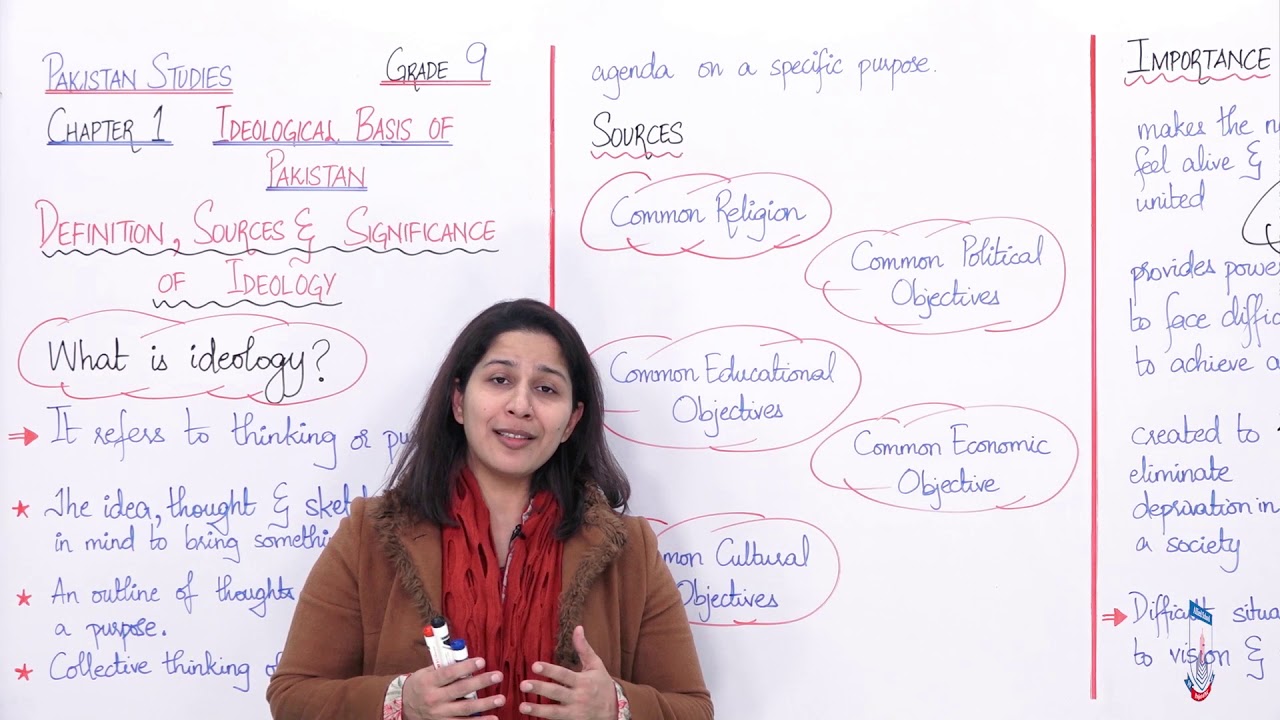 PAKISTAN STUDIES GRADE 9
CHAPTER 1 IDEOLOGICAL BASIS OF
PAKISTAN
DEFINITION, SOURCES & SIGNIFICANCE
OF IDEOLOGY
What is ideology?
⇒ It refers to thinking or
★ The idea, thought &
in mind to bring
★ An outline of thoughts
a purpose.
★ Collective thinking
agenda on a specific purpose.
SOURCES
Common Religion
Common Political
Objectives
Common Educational
Objectives
Common Economic
Objective
Cultural
Objectives
IMPORTANCE
makes the
feel alive &
united
provides
to face
to achieve
created to
eliminate
deprivation in
a society
⇒ Difficult
to vision &